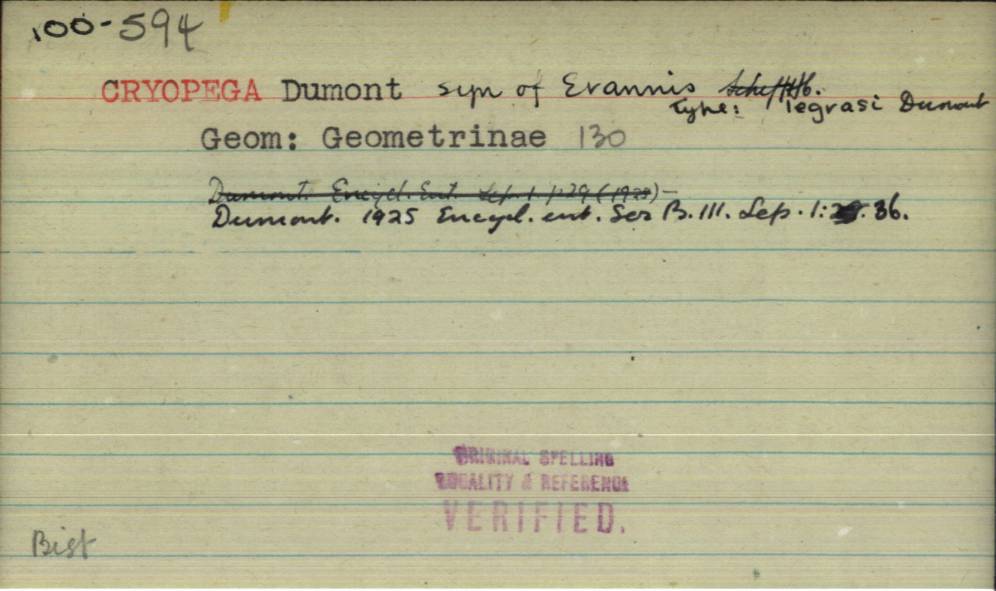 100-594
CRYOPEGA Dumont syn of Erannis
Type: Tegrasi Dumont
Geom: Geometrinae 130
Dumont. Encycl. Ent. Lep. 1. p. 29 (1925)-
Dumont. 1925 Encycl. ent. Ser B. III. Lep. 1: 36.
ORIGINAL SPELLING
LOCALITY & REFERENCE
VERIFIED.
Bist